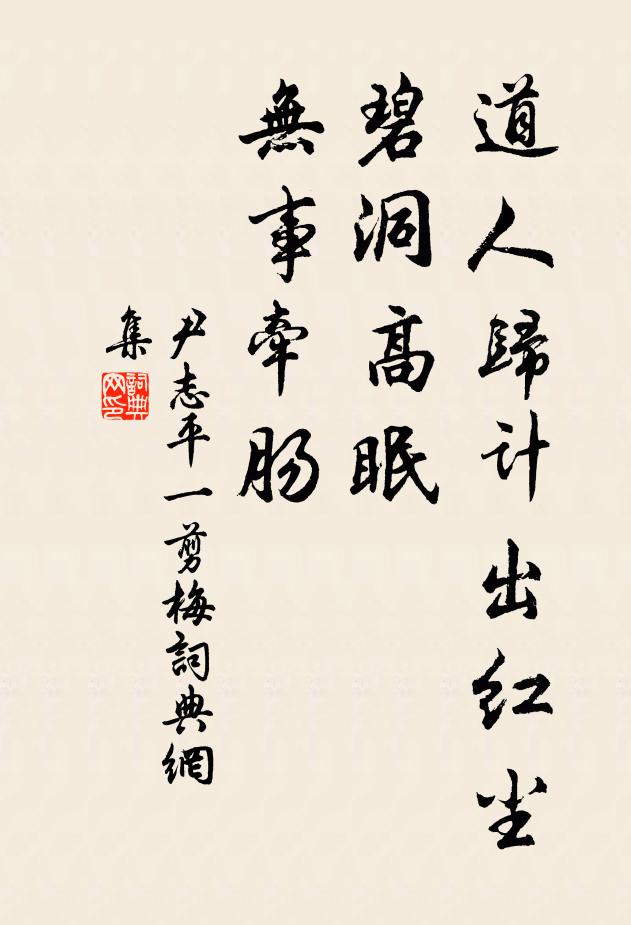 道人歸计出红尘
碧洞高眠
無事牽肠
尹志平一剪梅詞典網
集
詞典
网印